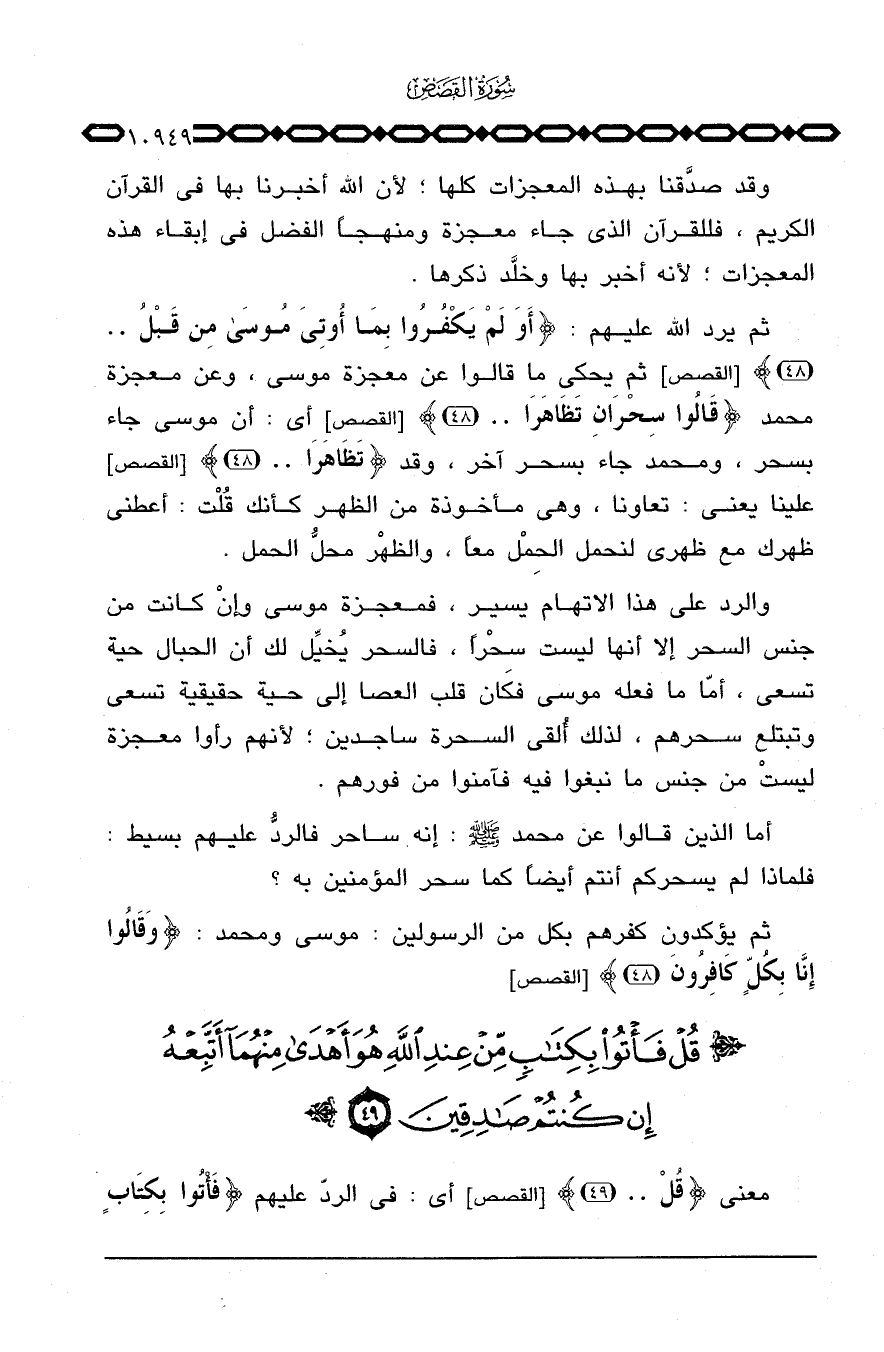 سُورَةُ القَصَصِ
١٠٩٤٩
وقد صدَّقنا بهذه المعجزات كلها ؛ لأن الله أخبرنا بها فى القرآن
الكريم ، فللقرآن الذى جاء معجزة ومنهجاً الفضل فى إبقاء هذه
المعجزات ؛ لأنه أخبر بها وخلَّد ذكرها .
ثم يرد الله عليهم : ﴿أَوَ لَمْ يَكْفُرُوا بِمَا أُوتِيَ مُوسَىٰ مِن قَبْلُ ..
(٤٨)﴾ [القصص] ثم يحكى ما قالوا عن معجزة موسى ، وعن معجزة
محمد ﴿قَالُوا سِحْرَانِ تَظَاهَرَا .. (٤٨)﴾ [القصص] أى : أن موسى جاء
بسحر ، ومحمد جاء بسحر آخر ، وقد ﴿تَظَاهَرَا .. (٤٨)﴾ [القصص]
علينا يعنى : تعاونا ، وهى مأخوذة من الظهر كأنك قُلْت : أعطنى
ظهرك مع ظهرى لنحمل الحِمْل معاً ، والظهْر محلُّ الحمل .
والرد على هذا الاتهام يسير ، فمعجزة موسى وإنْ كانت من
جنس السحر إلا أنها ليست سحْراً ، فالسحر يُخيِّل لك أن الحبال حية
تسعى ، أمّا ما فعله موسى فكَان قلب العصا إلى حية حقيقية تسعى
وتبتلع سحرهم ، لذلك أُلقى السحرة ساجدين ؛ لأنهم رأوا معجزة
ليستْ من جنس ما نبغوا فيه فآمنوا من فورهم .
أما الذين قالوا عن محمد ﷺ : إنه ساحر فالردُّ عليهم بسيط :
فلماذا لم يسحركم أنتم أيضاً كما سحر المؤمنين به ؟
ثم يؤكدون كفرهم بكل من الرسولين : موسى ومحمد : ﴿وَقَالُوا
إِنَّا بِكُلٍّ كَافِرُونَ (٤٨)﴾ [القصص]
﴿ قُلْ فَأْتُوا۟ بِكِتَٰبٍ مِّنْ عِندِ ٱللَّهِ هُوَ أَهْدَىٰ مِنْهُمَآ أَتَّبِعْهُ
إِن كُنتُمْ صَٰدِقِينَ ٤٩ ﴾
معنى ﴿قُلْ .. (٤٩)﴾ [القصص] أى : فى الردّ عليهم ﴿فَأْتُوا بِكِتَابٍ